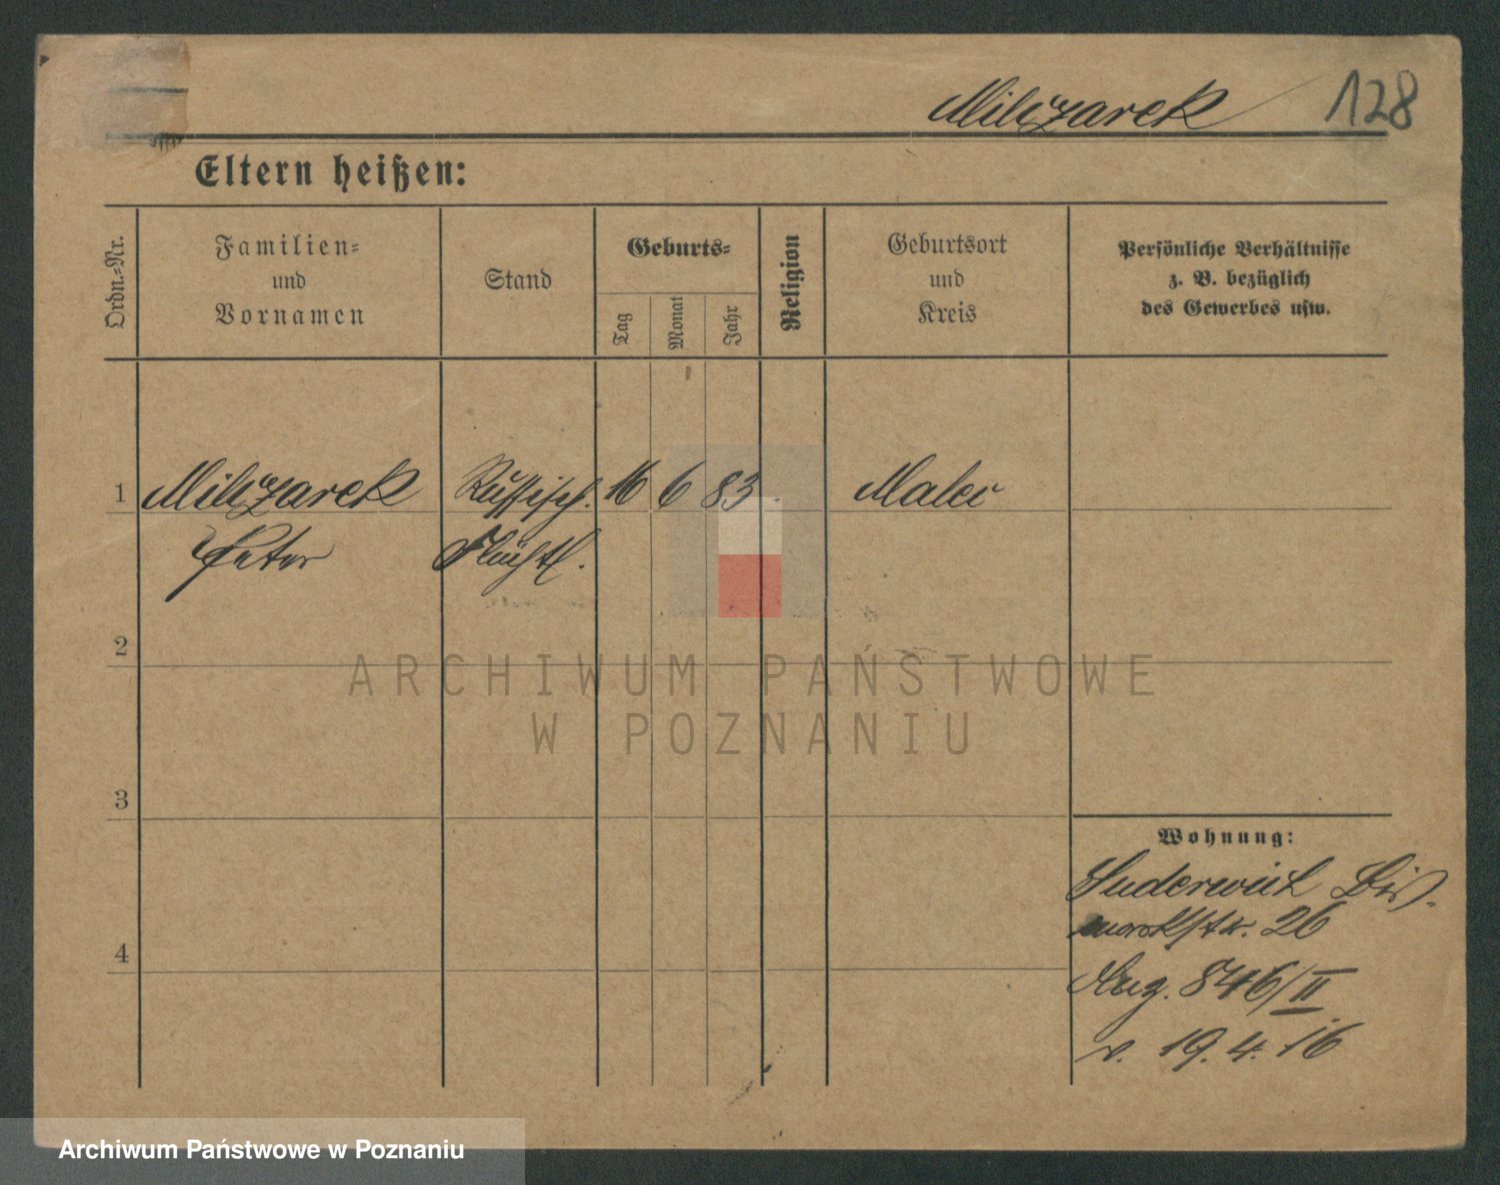 Milczarek 128
Eltern heißen:
Ordn.-Nr.
Familien-
und
Vornamen
Stand
Geburts-
Tag
Monat
Jahr
Religion
Geburtsort
und
Kreis
Persönliche Verhältnisse
z. B. bezüglich
des Gewerbes usw.
1 Milczarek Russisch. 16 6 83
Peter Flüchtl.
2
3
4
Wohnung:
Suderwich Bis-
marckstr. 26
Aug. 846/II
v. 19. 4. 16
ARCHIWUM PAŃSTWOWE
W POZNANIU
Archiwum Państwowe w Poznaniu